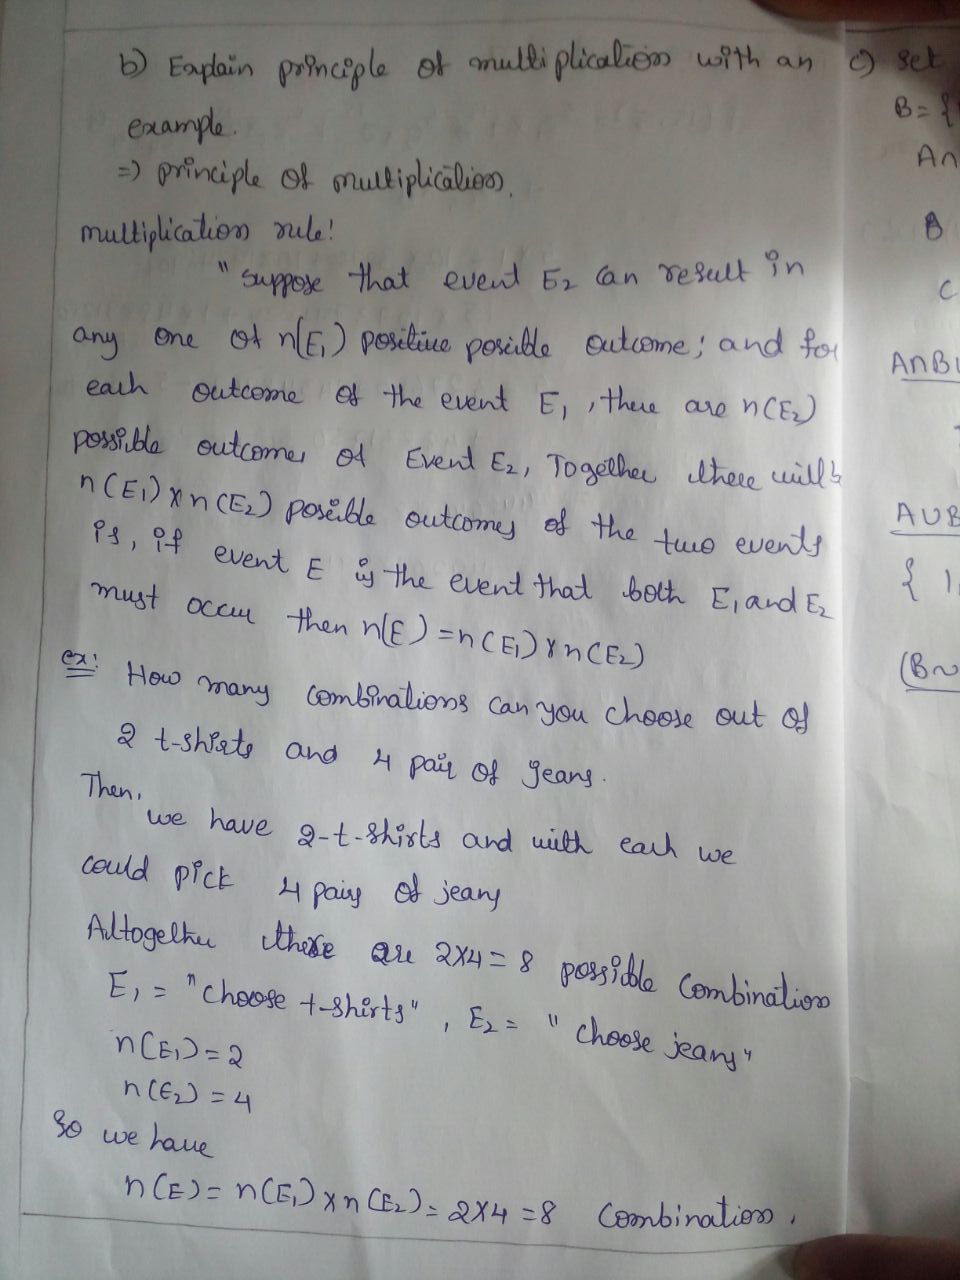 b) Explain principle of multiplication with an
example.
=) principle of multiplication.
multiplication rule!
" suppose that event E2 can result in
any one of n(E1) positive possible outcome; and for
each outcome of the event E1, there are n(E2)
possible outcomes of Event E2, Together there will b
n(E1) x n(E2) possible outcomes of the two events
is, if event E is the event that both E1 and E2
must occur then n(E) = n(E1) x n(E2)
ex: How many combinations can you choose out of
2 t-shirts and 4 pair of jeans.
Then,
we have 2-t-shirts and with each we
could pick 4 pairs of jeans
Altogether there are 2x4=8 possible combination
E1 = "choose t-shirts", E2 = "choose jeans"
n(E1)=2
n(E2)=4
so we have
n(E) = n(E1) x n(E2) = 2x4=8 combination.
c) set
B= {
An
B
C
AnBU
AUB
{ 1,
(B~